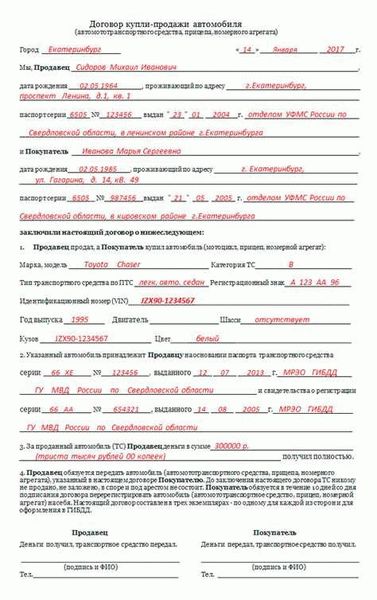 Договор купли-продажи автомобиля
(автомототранспортного средства, прицепа, номерного агрегата)
Город Екатеринбург « 14 » Января 2017 г.
Мы, Продавец Сидоров Михаил Иванович ,
дата рождения 02.05.1964 , проживающий по адресу г.Екатеринбург,
проспект Ленина, д.1, кв. 1
паспорт серии 6505 № 123456 выдан " 23 " 01 2004 г. отделом УФМС России по
Свердловской области, в ленинском районе г.Екатеринбурга
и Покупатель Иванова Марья Сергеевна ,
дата рождения 02.05.1985 , проживающий по адресу г. Екатеринбург,
ул. Гагарина, д. 14, кв. 49
паспорт серии 6505 № 987456 выдан " 21 " 05 2005 г. отделом УФМС России по
Свердловской области, в кировском районе г.Екатеринбурга
заключили настоящий договор о нижеследующем:
1. Продавец продал, а Покупатель купил автомобиль (мотоцикл, прицеп, номерной агрегат):
Марка, модель Toyota Chaser Категория ТС B
Тип транспортного средства по ПТС легк. авто. седан Регистрационный знак А 123 АА 96
Идентификационный номер (VIN) JZX90-1234567
Год выпуска 1995 Двигатель Шасси отсутствует
Кузов JZX90-1234567 Цвет белый
2. Указанный автомобиль принадлежит Продавцу на основании паспорта транспортного средства
серии 66 ХЕ № 123456 , выданного 12 " 07 " 2013 г. МРЭО ГИБДД
ГУ МВД России по Свердловской области и свидетельства о регистрации
серии 66 АА № 654321 , выданного 14 " 08 " 2005 г. МРЭО ГИБДД
ГУ МВД России по Свердловской области
3. За проданный автомобиль (ТС) Продавец деньги в сумме 300000 р.
(триста тысяч рублей 00 копеек) получил полностью.
4. Продавец обязуется передать автомобиль (автомототранспортное средство, прицеп, номерной
агрегат), указанный в настоящем договоре Покупателю. До заключения настоящего договора ТС никому
не продано, не заложено, в споре и под арестом не состоит. Покупатель обязуется в течение 10 дней со дня
подписания договора перерегистрировать автомобиль (автомототранспортное средство, прицеп, номерной
агрегат) на себя. Настоящий договор составлен в трех экземплярах - по одному для каждой из сторон и для
оформления в ГИБДД.
Продавец Покупатель
Деньги получил, транспортное средство передал. Деньги передал, транспортное средство получил.
(подпись и ФИО) (подпись и ФИО)
Тел. Тел.